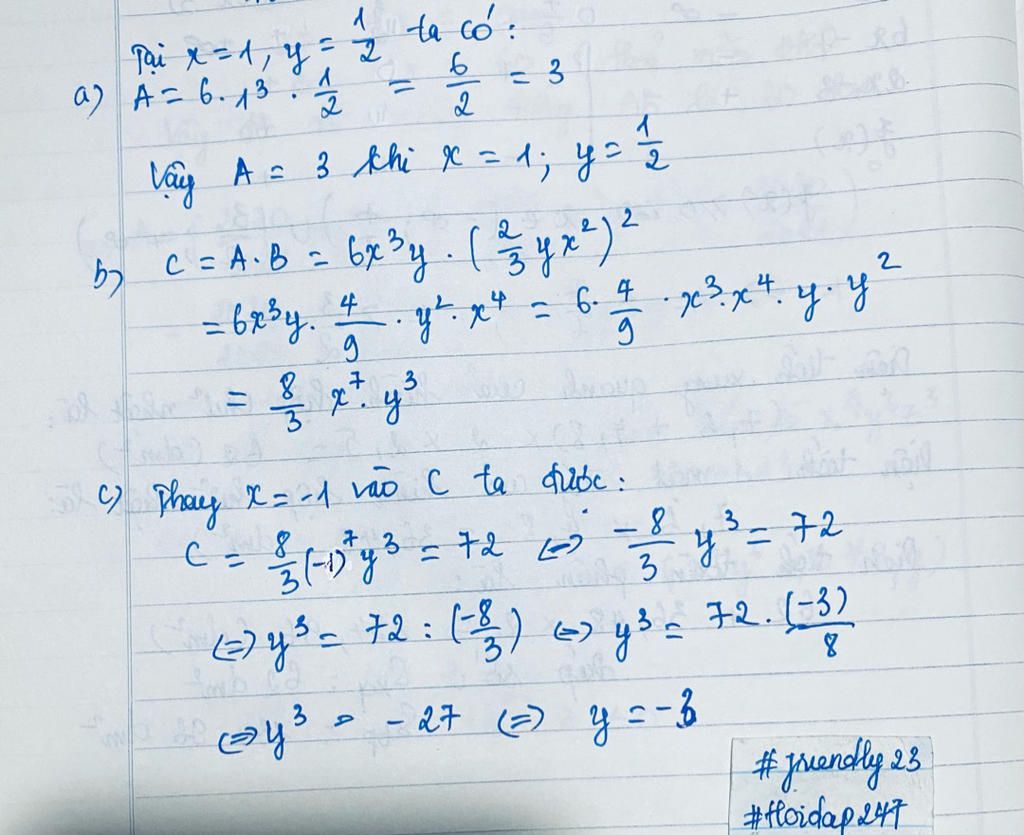 Tại x = 1, y = 1/2 ta có:
a) A = 6 . 1³ . 1/2 = 6/2 = 3
Vậy A = 3 khi x = 1; y = 1/2
b) C = A . B = 6x³y . (2/3 yx²)²
= 6x³y . 4/9 . y² . x⁴ = 6 . 4/9 . x³ . x⁴ . y . y²
= 8/3 x⁷ . y³
c) Thay x = -1 vào C ta được:
C = 8/3 (-1)⁷ y³ = 72 <=> -8/3 y³ = 72
<=> y³ = 72 : (-8/3) <=> y³ = 72 . (-3)/8
<=> y³ = -27 <=> y = -3
#friendly23
#Hoidap247